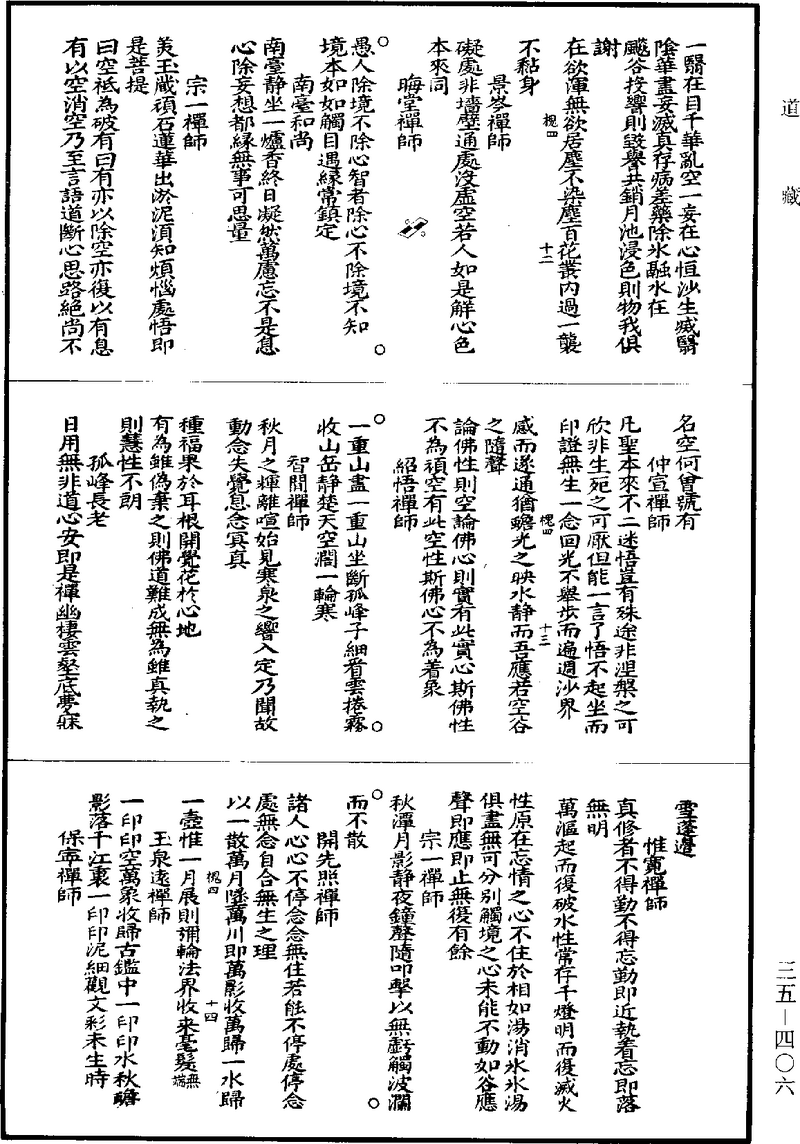 道藏
一翳在目千華亂空一妄在心恒沙生滅翳
除華盡妄滅真存病差藥除氷融水在
飈谷投響則毀譽共銷月池浸色則物我俱
謝
在欲渾無欲居塵不染塵百花叢內過一襲
不黏身
景岑禪師
礙處非墻壁通處沒虛空若人如是解心色
本來同
晦堂禪師
愚人除境不除心智者除心不除境不知
境本如如觸目遇緣常鎮定
南臺和尚
南臺静坐一爐香終日凝然萬慮忘不是息
心除妄想都緣無事可思量
宗一禪師
美玉蔵頑石蓮華出淤泥湏知煩惱處悟即
是菩提
曰空祇為破有曰有亦以除空亦復以有息
有以空消空乃至言語道斷心思路絕尚不
槐四
十二
名空何曾號有
仲宣禪師
凡聖本來不二迷悟豈有殊途非涅槃之可
欣非生死之可厭但能一言了悟不起坐而
印證無生一念回光不舉步而遍週沙界
感而遂通猶蟾光之映水静而吾應若空谷
之隨聲
論佛性則空論佛心則實有此實心斯佛性
不為頑空有此空性斯佛心不為着象
紹悟禪師
一重山盡一重山坐斷孤峰子細看雲捲霧
收山岳静楚天空濶一輪寒
智閒禪師
秋月之輝離喧始見寒泉之響入定乃聞故
動念失覺息念冥真
種福果於耳根開覺花於心地
有為雖偽棄之則佛道難成無為雖真執之
則慧性不朗
孤峰長老
日用無非道心安即是禪幽棲雲壑底夢寐
槐四
十三
雪蓬邊
惟寬禪師
真修者不得勤不得忘勤即近執着忘即落
無明
萬漚起而復破水性常存千燈明而復滅火
性原在忘情之心不住於相如湯消氷氷湯
俱盡無可分別觸境之心未能不動如谷應
聲即應即止無復有餘
宗一禪師
秋潭月影静夜鐘聲隨叩擊以無虧觸波瀾
而不散
開先照禪師
諸人心心不停念念無住若能不停處停念
處無念自合無生之理
以一散萬月墜萬川即萬影收萬歸一水歸
一壺惟一月展則彌輪法界收來毫髮無端
玉泉遠禪師
一印印空萬象收歸古鑑中一印印水秋蟾
影落千江裏一印印泥細觀文彩未生時
保寧禪師
槐四
十四
三五—四〇六